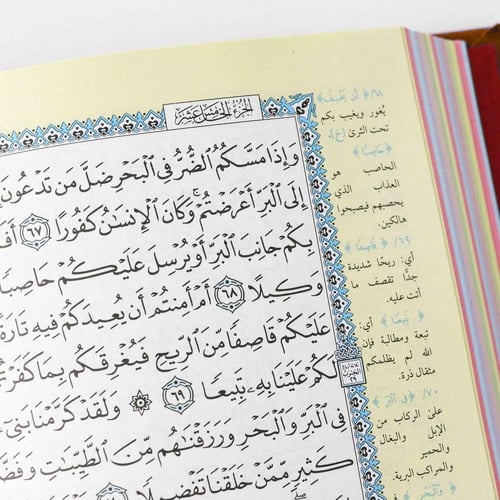 الجزء الخامس عشر
وَإِذَا مَسَّكُمُ ٱلضُّرُّ فِي ٱلْبَحْرِ ضَلَّ مَن تَدْعُونَ
إِلَى ٱلْبَرِّ أَعْرَضْتُمْ ۚ وَكَانَ ٱلْإِنسَٰنُ كَفُورًا ٦٧
بِكُمْ جَانِبَ ٱلْبَرِّ أَوْ يُرْسِلَ عَلَيْكُمْ حَاصِبًا
وَكِيلًا ٦٨ أَمْ أَمِنتُمْ أَن يُعِيدَكُمْ فِيهِ تَارَةً
عَلَيْكُمْ قَاصِفًا مِّنَ ٱلرِّيحِ فَيُغْرِقَكُم بِمَا كَفَرْتُمْ
لَكُمْ عَلَيْنَا بِهِۦ تَبِيعًا ٦٩ ۞ وَلَقَدْ كَرَّمْنَا بَنِيٓ
فِي ٱلْبَرِّ وَٱلْبَحْرِ وَرَزَقْنَٰهُم مِّنَ ٱلطَّيِّبَٰتِ
كَثِيرٍ مِّمَّنْ خَلَقْنَا تَفْضِيلًا
٦٨/ ﴿أَن يَخْسِفَ﴾
يُغور ويغيب بكم
تحت الثرىٰ (خ).
﴿حَاصِبًا﴾
الحاصب هو
العذاب الذي
يحصبهم فيصبحوا
هالكين.
٦٩/ ﴿قَاصِفًا﴾
أي: ريحًا شديدة
جدًا تقصف ما
أتت عليه.
﴿تَبِيعًا﴾ أي:
تبعة ومطالبة فإن
الله لم يظلمكم
مثقال ذرة.
٧٠/ ﴿فِي ٱلْبَرِّ﴾
علىٰ الركاب من
الإبل والبغال
والحمير
والمراكب البرية.
﴿وَٱلْبَحْرِ﴾